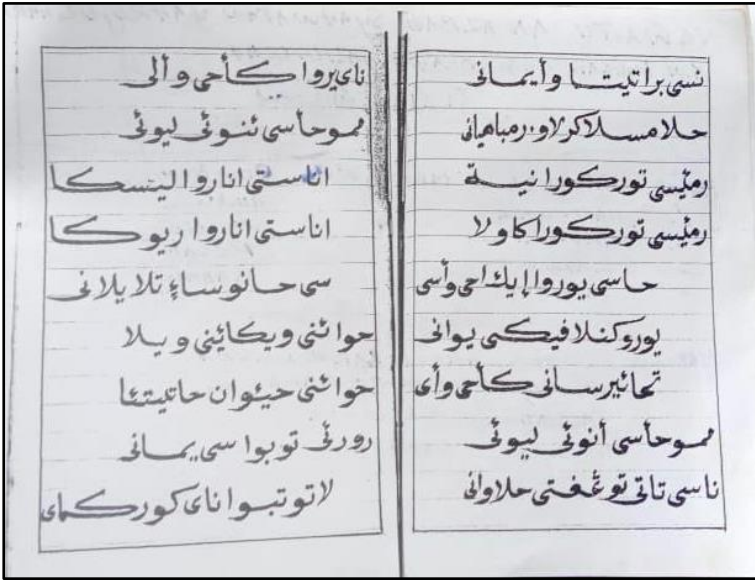 نسى براتيتا وأيمانى
حلا مسلاكرلاو. رمباهيانى
رمئيسى توركورانية
رمئيسى توركوراكاولا
حاسى يوروا إيك احى وأسى
يوروكنلا فيكى يوانى
تحائير سانى كأحى وأى
ممو حأسى أنوئى ليوئى
ناسى تاتى توغفتى حلاوانى
ناى يروا كأحى وألى
ممو حأسى ئنوئى ليوئى
اناستى اناروا لينسكا
اناستى اناروا ريوكا
سى حانوساءِ تلايلانى
حوائنى ويكائينى ويلا
حوائنى حيئوان حاتيتئا
رورئى توبوا سى يمانى
لاتوتبوا ناى كوركماى